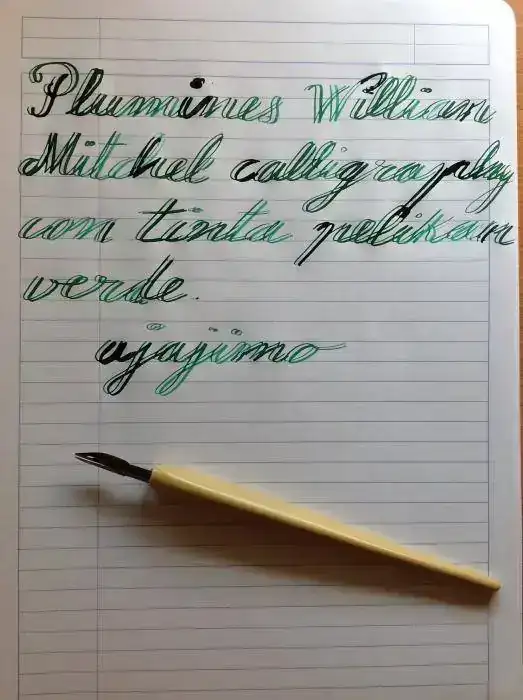 Plumines William
Mitchel calligraphy
com tinta pelikan
verde.
ajajimo